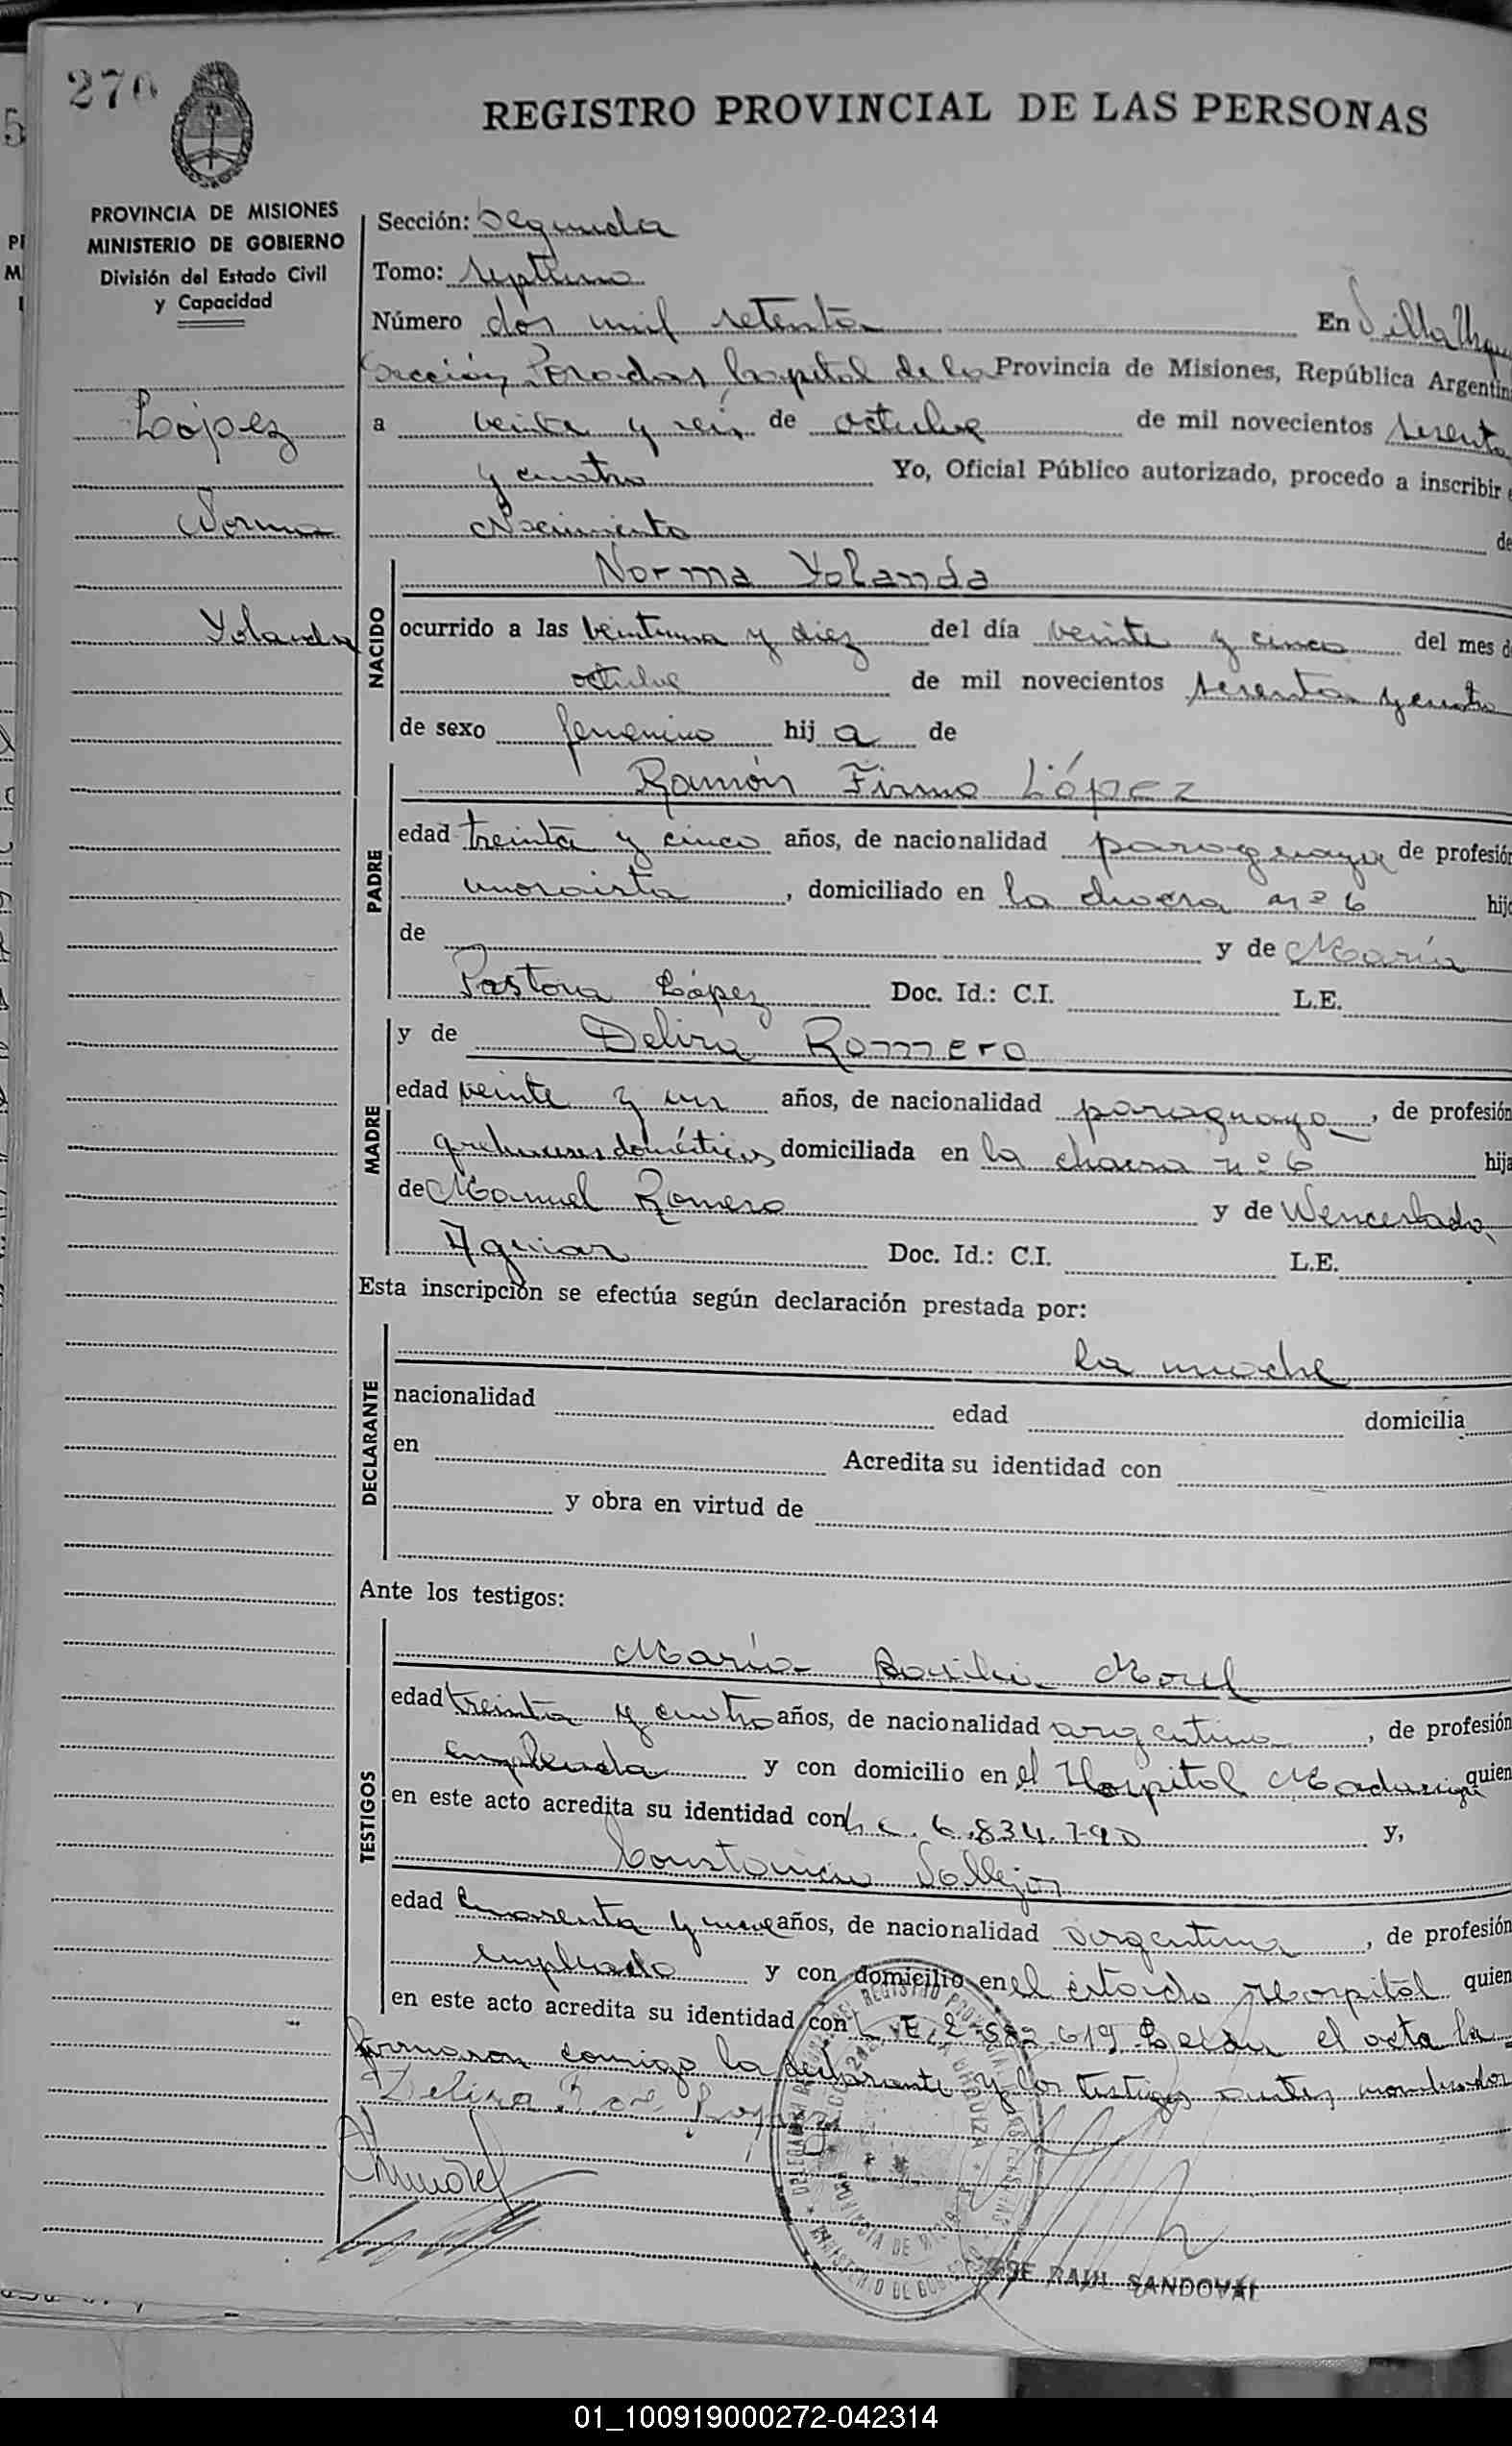 270
REGISTRO PROVINCIAL DE LAS PERSONAS
PROVINCIA DE MISIONES
MINISTERIO DE GOBIERNO
División del Estado Civil
y Capacidad
López
Norma
Yolanda
Sección: Segunda
Tomo: septimo
Número dos mil setenta En Villa Urqu
Sección, Posadas, Capital de la Provincia de Misiones, República Argentin
a veinte y seis de octubre de mil novecientos sesenta
y cuatro Yo, Oficial Público autorizado, procedo a inscribir e
Nacimiento de
NACIDO
Norma Yolanda
ocurrido a las veintiuna y diez del día veinte y cinco del mes d
octubre de mil novecientos sesenta y cuatro
de sexo femenino hij a de
PADRE
Ramón Firmo López
edad treinta y cinco años, de nacionalidad paraguaya de profesión
mosaista, domiciliado en la chacra nº 6 hijo
de y de María
Pastora López Doc. Id.: C.I. L.E.
MADRE
y de Delira Romero
edad veinte y un años, de nacionalidad paraguaya, de profesión
quehaceres domésticos domiciliada en la chacra nº 6 hija
de Manuel Romero y de Wenceslada
Aguiar Doc. Id.: C.I. L.E.
Esta inscripción se efectúa según declaración prestada por:
DECLARANTE
la madre
nacionalidad edad domicilia
en Acredita su identidad con
y obra en virtud de
Ante los testigos:
TESTIGOS
María Morel
edad treinta y cuatro años, de nacionalidad argentina, de profesión
empleada y con domicilio en el Hospital Madariaga quien
en este acto acredita su identidad con L. C. 6.834.790 y,
Constancio Vallejos
edad cuarenta y nueve años, de nacionalidad argentina, de profesión
empleado y con domicilio en el citado Hospital quien
en este acto acredita su identidad con L. E. 2.582.619 Leída el acta la
firmaron conmigo la declarante y los testigos antes nombrados
Delira R de Lopez
JOSE RAUL SANDOVAL
01_100919000272-042314